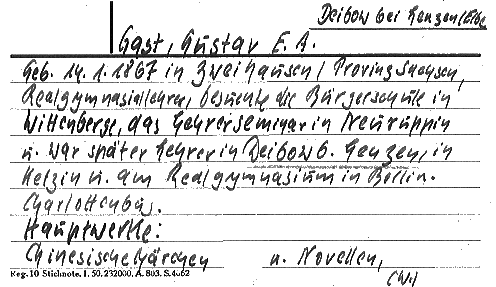 Deibow bei Lenzen/Elbe
Gast, Gustav E. A.
Geb. 14.1.1867 in Zweihausen/Provinz Sachsen,
Realgymnasiallehrer, besuchte die Bürgerschule in
Wittenberge, das Lehrerseminar in Neuruppin
u. war später Lehrer in Deibow b. Lenzen, in
Retzin u. am Realgymnasium in Berlin-
Charlottenburg.
Hauptwerke:
Chinesische Märchen u. Novellen,
Reg. 10 Stichnote. I. 50. 232000. A. 803. S.4662